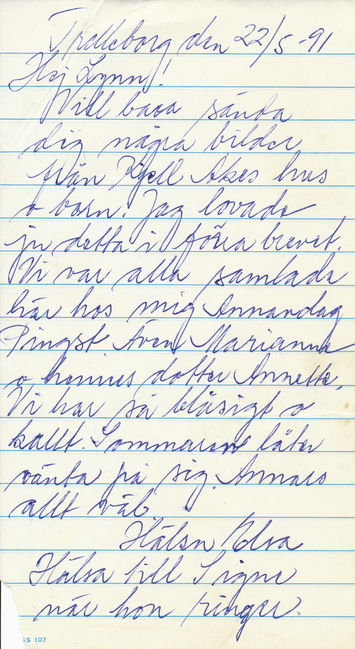 Trelleborg den 22/5 -91
Hej Lynn!
Vill bara sända
dig några bilder
från Kjell Åkes hus
o barn. Jag lovade
ju detta i förra brevet.
Vi var alla samlade
här hos mig Annandag
Pingst Även Marianne
o hennes dotter Annette.
Vi har så blåsigt o
kallt. Sommaren låter
vänta på sig. Annars
allt väl.
Hälsn Elsa
Hälsa till Signe
när hon ringer.
GS 107